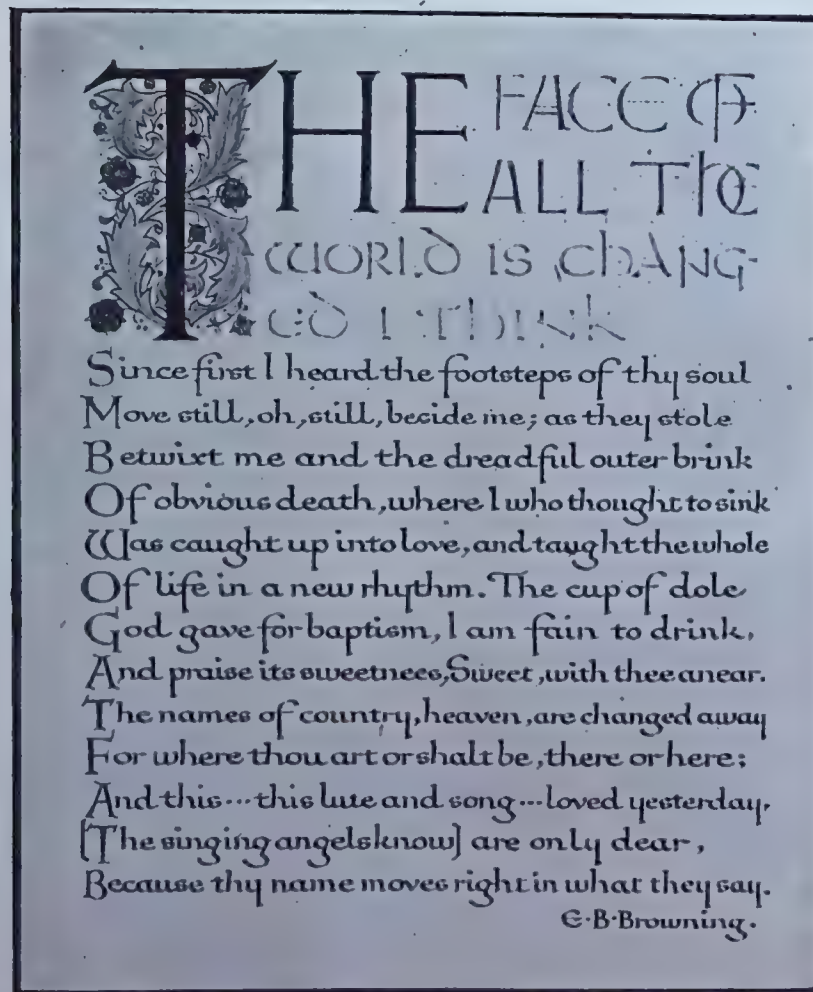 THE FACE OF
ALL THE
WORLD IS CHANG-
ED I THINK
Since first I heard the footsteps of thy soul
Move still, oh, still, beside me; as they stole
Betwixt me and the dreadful outer brink
Of obvious death, where I who thought to sink
Was caught up into love, and taught the whole
Of life in a new rhythm. The cup of dole
God gave for baptism, I am fain to drink,
And praise its sweetness, Sweet, with thee anear.
The names of country, heaven, are changed away
For where thou art or shalt be, there or here;
And this...this lute and song...loved yesterday,
[The singing angels know] are only dear,
Because thy name moves right in what they say.
E·B·Browning.